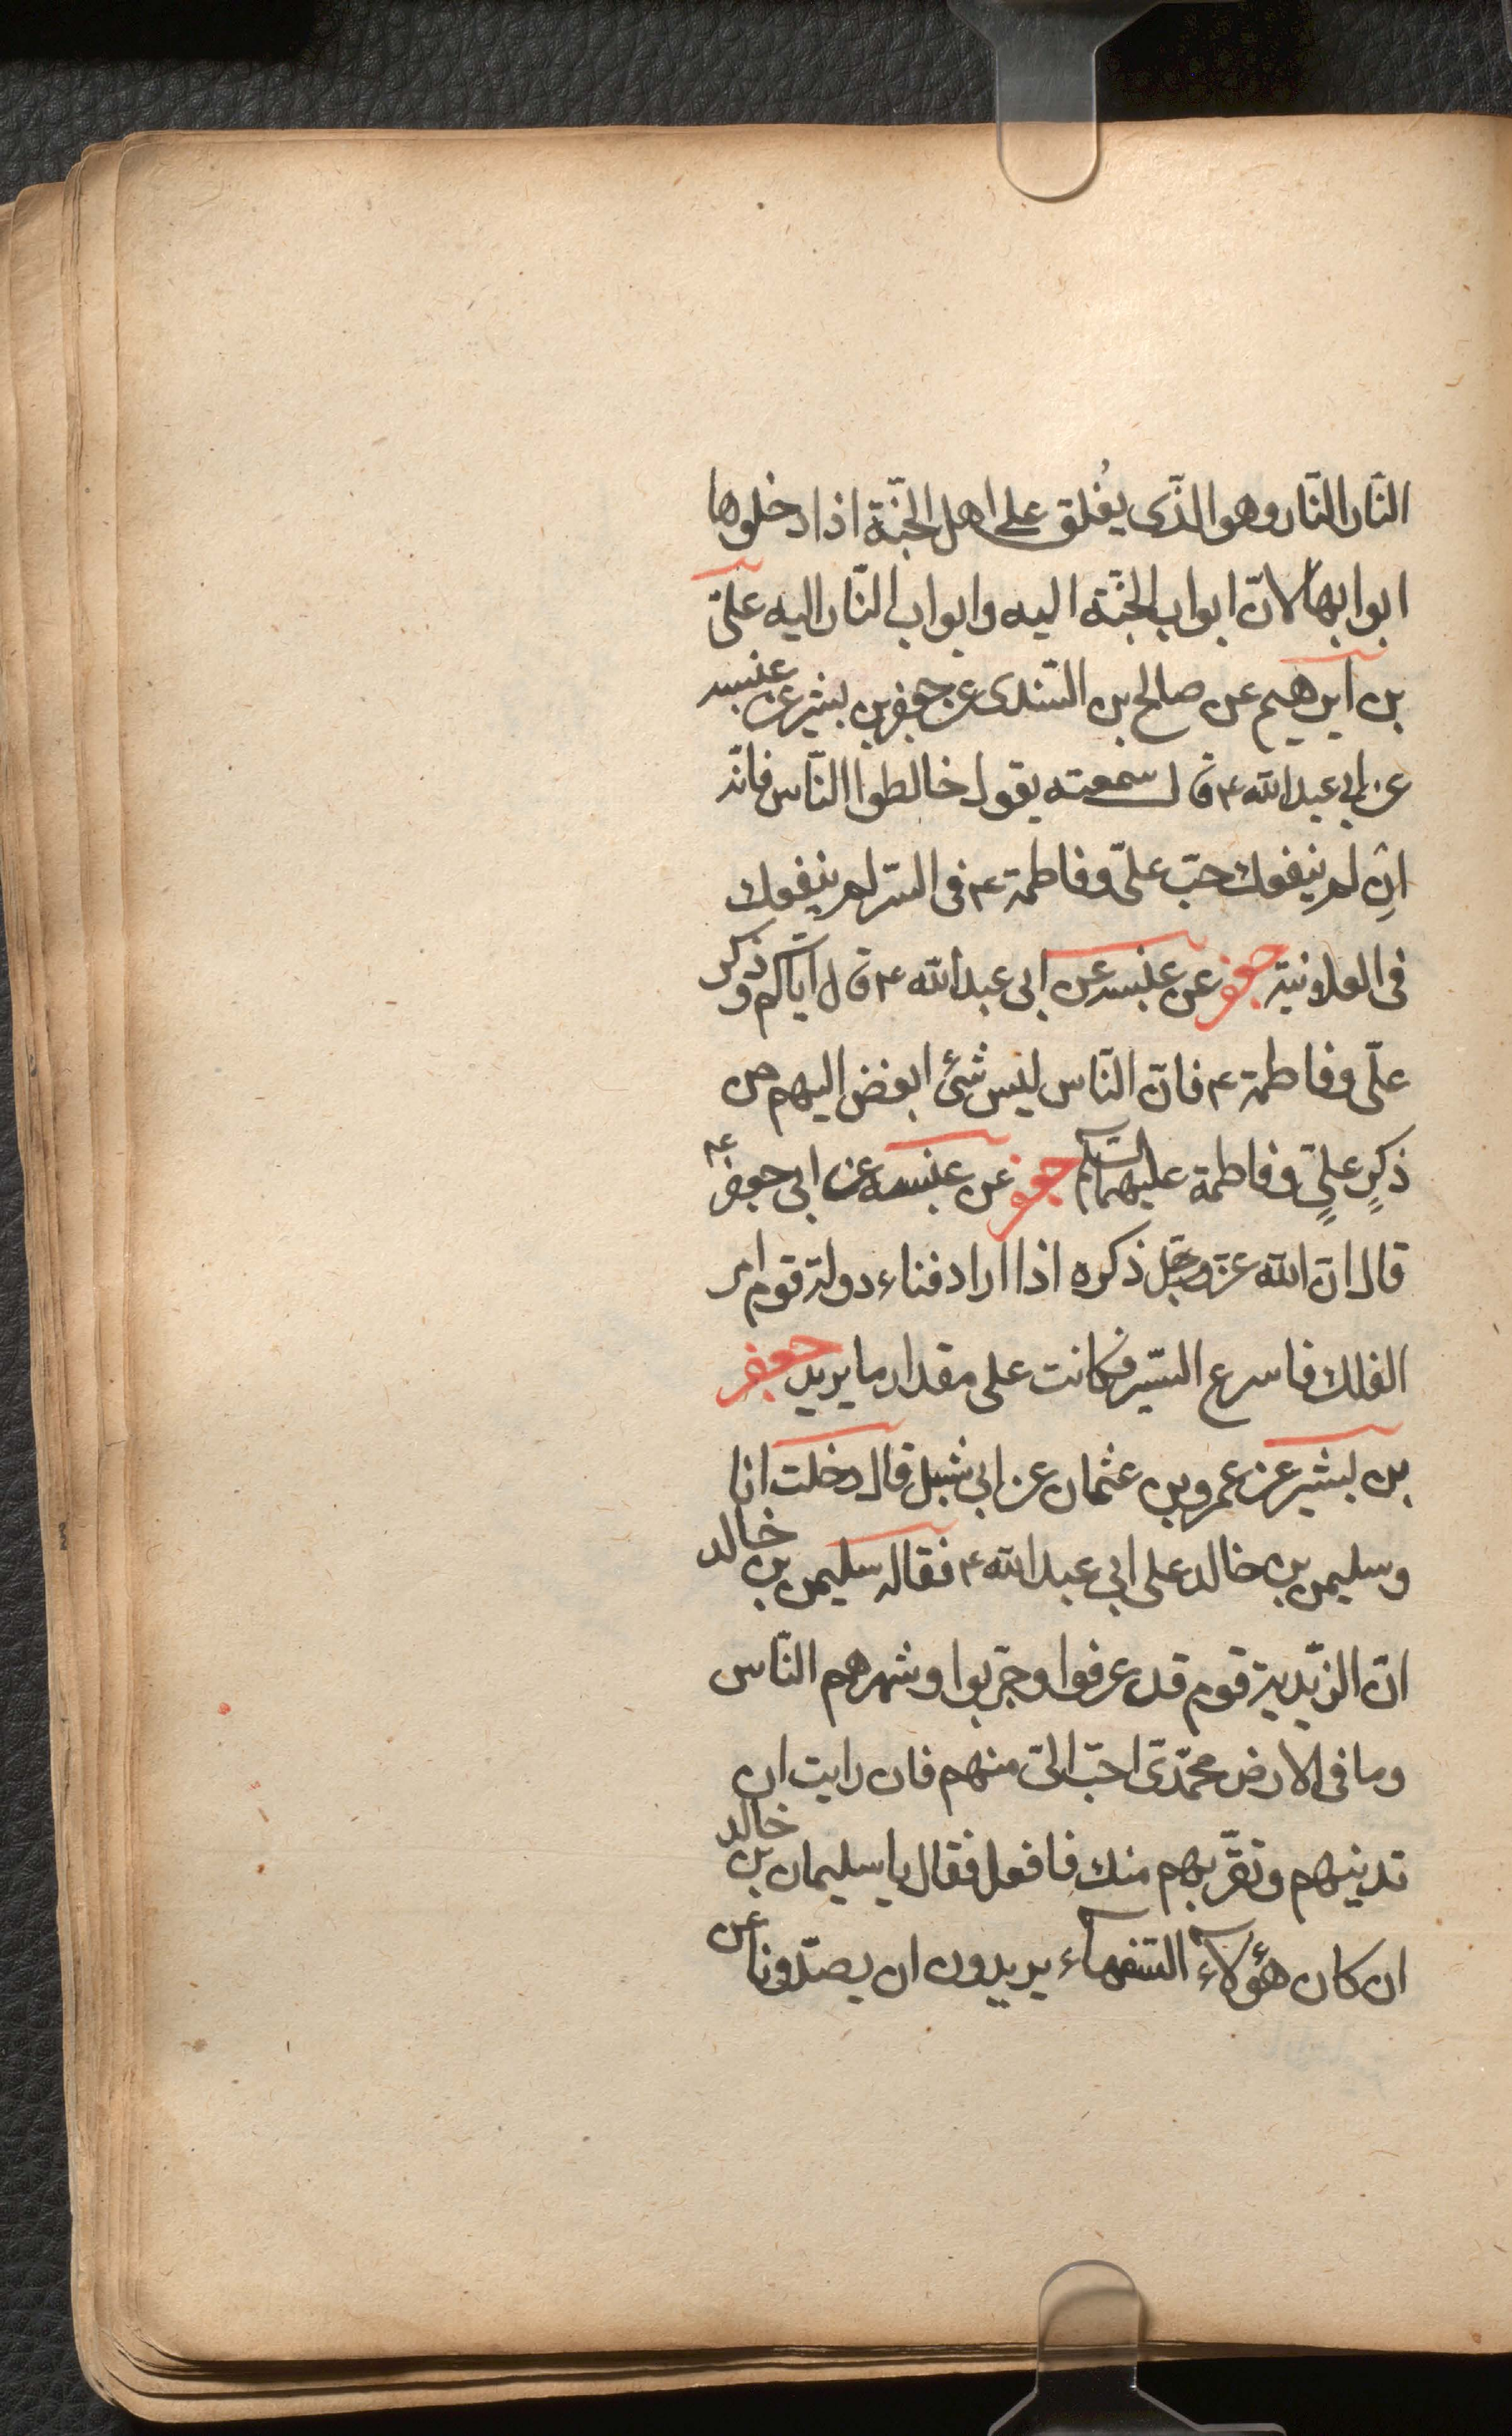 النّار النّار وهو الذّى يُغلق على اهل الجنّة اذا دخلوها
ابوابها لانّ ابواب الجنّة اليه وابواب النّار اليه علىّ
بن ابرهيم عن صالح بن السّندى عن جعفر بن بشير عن عنبسه
عن ابى عبد الله ع ق ل سمعته يقول خالطوا النّاس فانّه
ان لم ينفعك حبّ علىّ وفاطمة ع فى السّر لم ينفعك
فى العلانية جعفر عن عنبسه عن ابى عبد الله ع ق ل ايّاكم وذكر
علىّ وفاطمة ع فانّ النّاس ليس شئ ابغض اليهم من
ذكرِ علىٍّ وفاطمة عليهما السّلام جعفر عن عنبسه عن ابى جعفر ع
قال انّ الله عزّ وجلّ ذكره اذا اراد فناء دولة قوم امر
الفلك فاسرع السّير فكانت على مقدار ما يريد جعفر
بن بشير عن عمرو بن عثمان عن ابى شبل قال دخلت انا
وسليمن بن خالد على ابى عبد الله ع فقال له سليمن بن خالد
انّ الزّيديّة قوم قد عرفوا وجرّبوا وشهرهم النّاس
وما فى الارض محمّدىّ احبّ الىّ منهم فان رايت ان
تدنيهم وتقرّبهم منك فافعل فقال يا سليمان بن خالد
ان كان هؤلآء السّفهآء يريدون ان يصدّونا عن